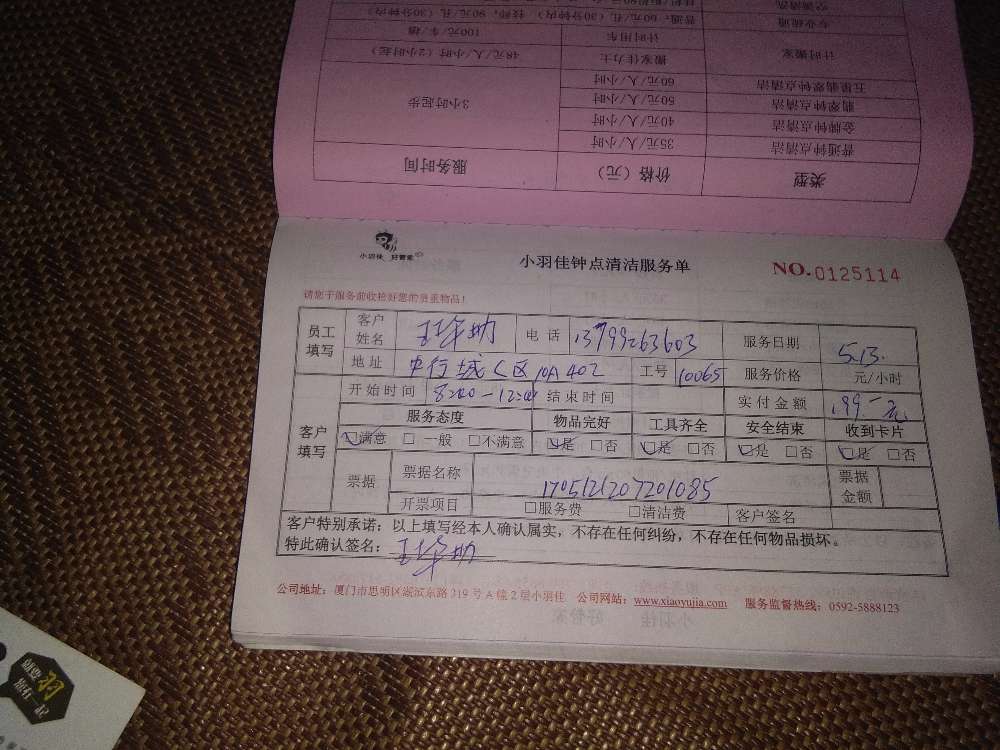 空调清洗
专业疏通 普通:60元/孔(30分钟内) 技师:90元/孔(30分钟内)
计时用车 100元/车/趟
计时搬家 搬家佳力士 48元/人/小时(2小时起)
五星翡翠钟点清洁 60元/人/小时
翡翠钟点清洁 50元/人/小时 3小时起步
金牌钟点清洁 40元/人/小时
普通钟点清洁 35元/人/小时
类型 价格(元) 服务时间
小羽佳 好管家
小羽佳钟点清洁服务单 NO.0125114
请您于服务前收检好您的贵重物品!
员工填写 客户姓名 电话 13799263603 服务日期 5.13.
地址 央行城C区10A402 工号 10065 服务价格 元/小时
开始时间 8:00-12:00 结束时间 实付金额 199元
客户填写 服务态度 物品完好 工具齐全 安全结束 收到卡片
满意 一般 不满意 是 否 是 否 是 否 是 否
票据 票据名称 1705121207201085 票据金额
开票项目 服务费 清洁费 客户签名
客户特别承诺:以上填写经本人确认属实,不存在任何纠纷,不存在任何物品损坏。
特此确认签名:
公司地址:厦门市思明区湖滨东路319号A幢2层小羽佳 公司网站:www.xiaoyujia.com 服务监督热线:0592-5888123